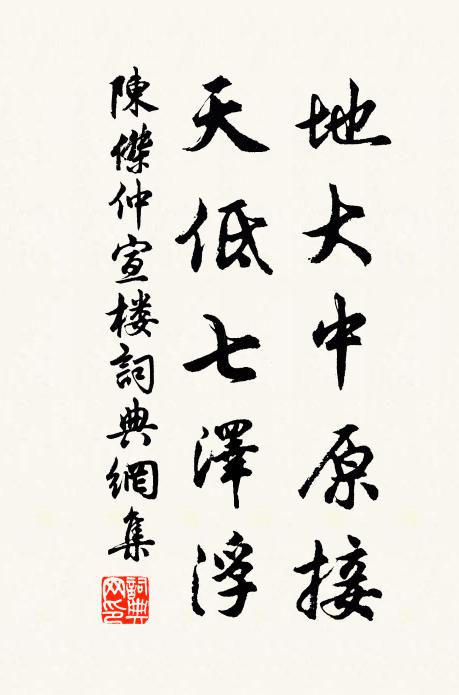 地大中原接
天低七澤浮
陳傑仲宣楼詞典網集
詞典网印